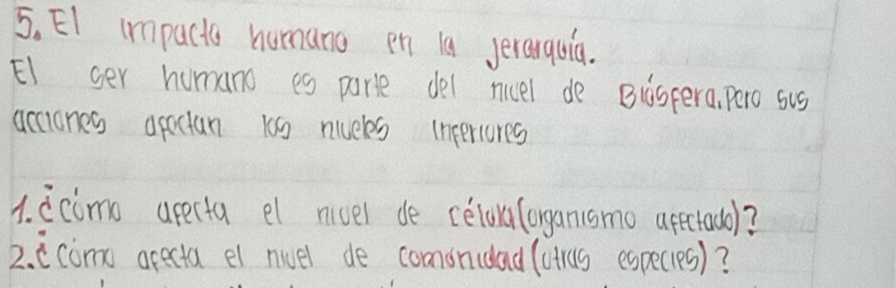 5. El impacto humano en la jerarquía.
El ser humano es parte del nivel de Biósfera. Pero sus
acciones afectan los niveles inferiores
1. ¿cómo afecta el nivel de célula (organismo afectado)?
2. ¿cómo afecta el nivel de comunidad (otras especies)?